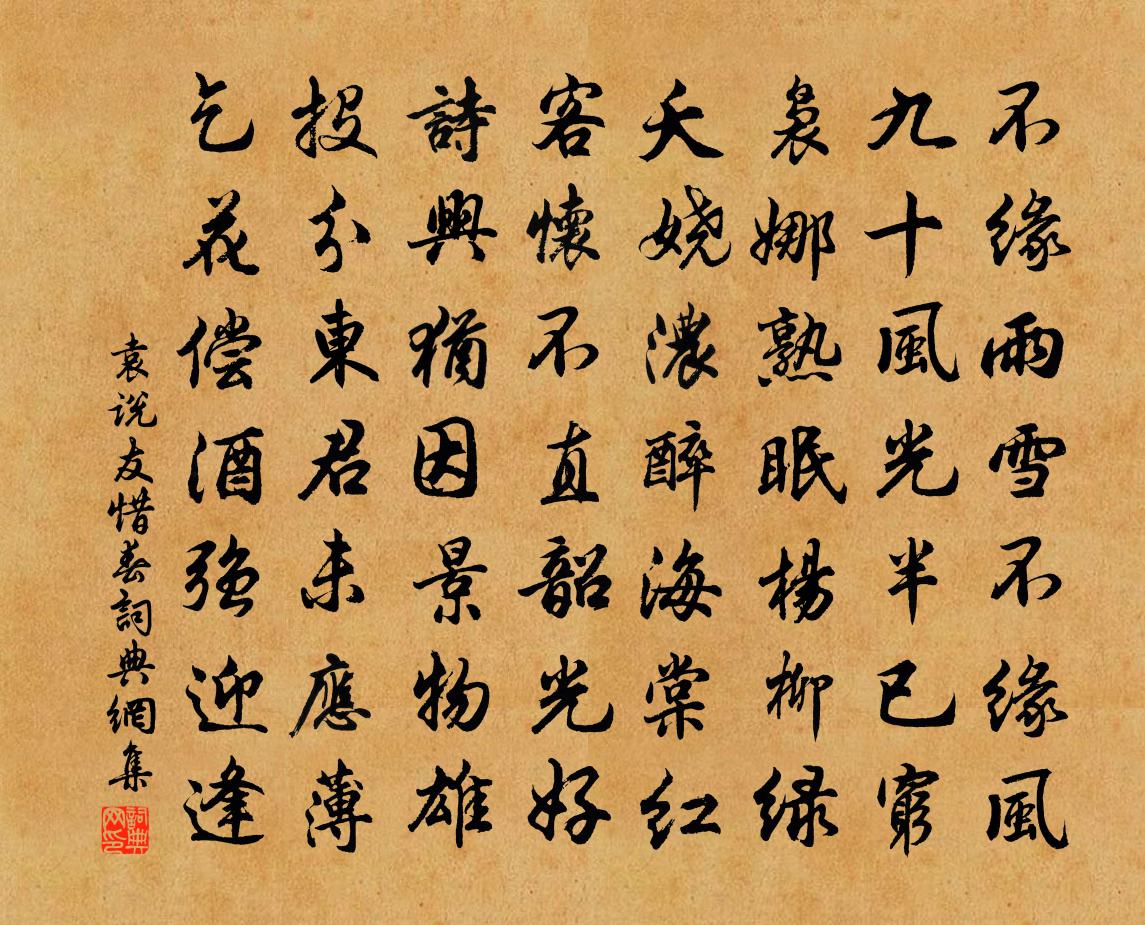 不緣雨雪不緣風
九十風光半已窮
裊娜熟眠楊柳绿
夭嬈濃醉海棠红
客懷不直韶光好
詩興猶因景物雄
投分東君未應薄
乞花偿酒強迎逢
袁说友惜春詞典網集
詞典网印